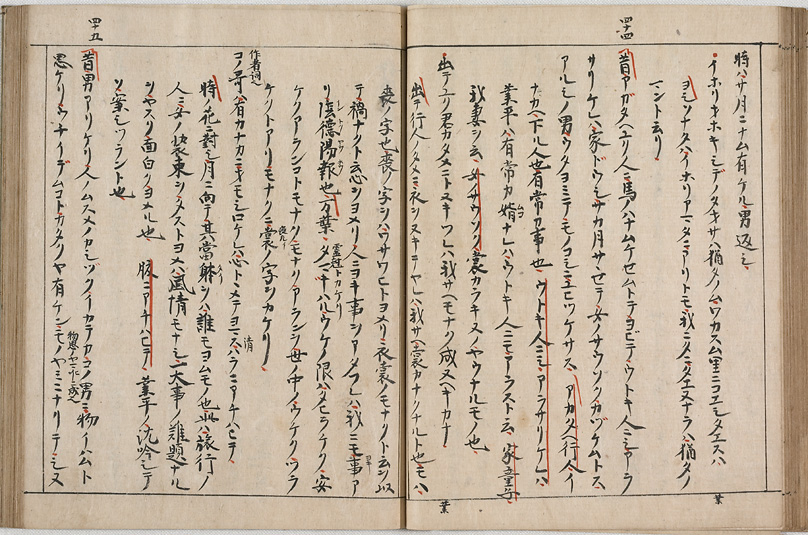 四十四
時ハサ月ニナム有ケル男返シ
イホリオホキシデノタオサハ猶タノムワカスム里ニコエシタエスハ
ヨシナタハイホリアマタニアリトモ我ニタニタエスナラハ猶タノ
マント云リ
昔アカタヘユク人ニ馬ノハナムケセムトテヨビテウトキ人ニシアラ
サリケレハ家ドウシサカ月サヽセテ女ノサウソクカヅケムトス
アルシノ男ウタヨミテモノコシニユヒツケサス アカタヘ行人イ
ナカヘ下ル人也有常カ事也 ウトキ人ニシアラサリケレハ
業平ハ有常カ婿ナレハウトキ人ニモアラスト云 家童子
我妻ヲ云 女ノサウソク裳カラキヌノヤウナルモノ也
出テユク君カタメニトヌキツレハ我サヘモナクノ成ヌヘキカナ
出テ行人ノタメニ衣ヲヌキテヤレハ我サヘ裳カナクナルト也モハ
四十五
裳ノ字也喪ノ字ヲハワサワヒトヨメリ衣裳ノモナクト云ヲ以
テ禍ナクト云心ヲヨメリ人ニヨキ事ヲアタフレハ我ニモ事ア
リ陰德陽報也万葉ニタマキハルウケノ限ハタヒラケク安
霊尅トカケリ
ケクアランコトモナクモナクアランヲ世ノ中ノウケクツラ
ケクトアリモナクニ裳ノ字ヲカケリ
作者詞ヘ
コノ哥ハ有カナカニオモシロケレハ心トヽメテヨマスハラニアチハヒテ
時ノ花ニ對シ月ニ向テ其當躰ヲハ誰モヨムモノ也此ハ旅行ノ
人ニ女ノ装束ヲタストヨメハ風情モナシ一大事ノ難題ナル
ヲヤスク面白クヨメル也 腹ニアチハヒテ 業平ノ沈吟シテ
ヲ案シツラント也
昔男アリケリ人ノムスメノカシツクイカテカコノ男ニ物イハムト
思ケリウチイデムコトカタクヤ有ケンモノヤミニナリテシヌ